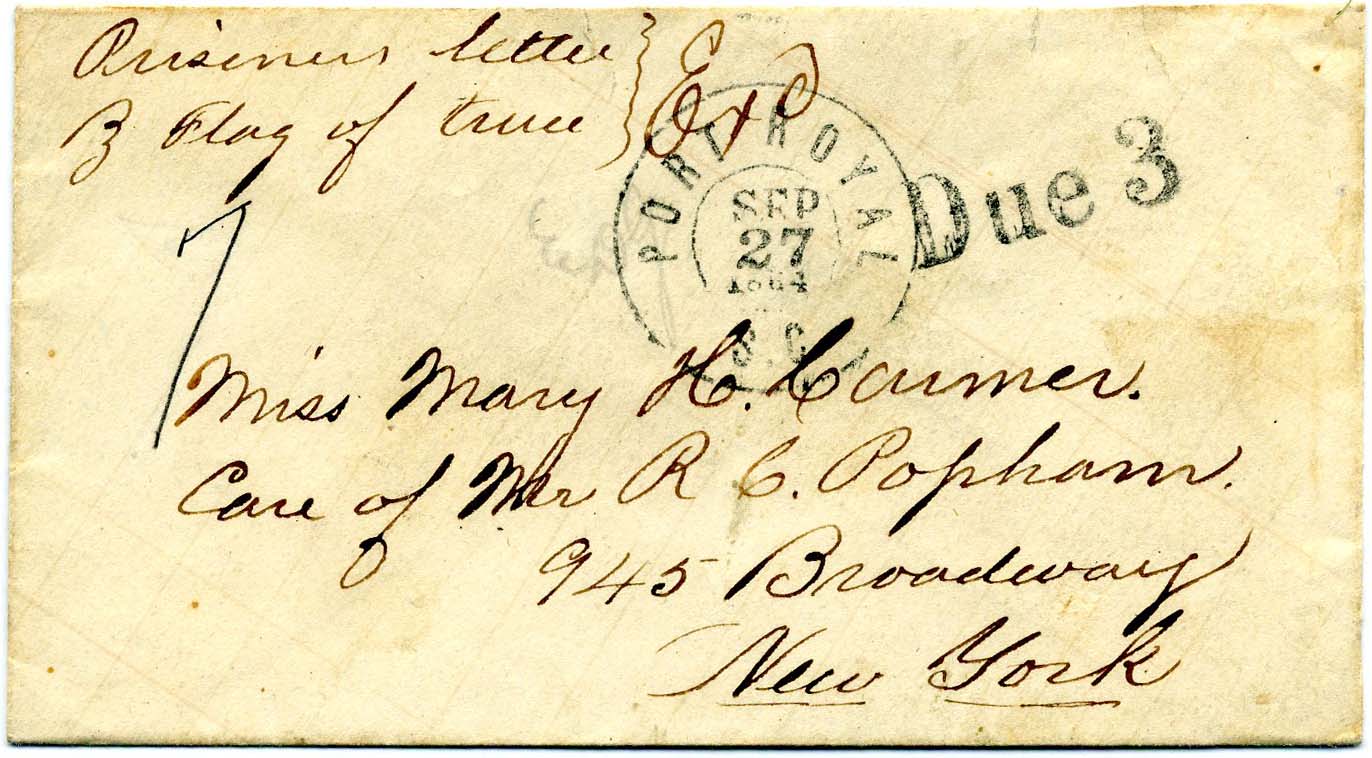 Prisoners letter
By Flag of truce
Exd
PORT ROYAL
SEP
27
1864
S.C.
Due 3
Miss Mary H. Carmer.
Care of Mr R C. Popham.
945 Broadway
New York